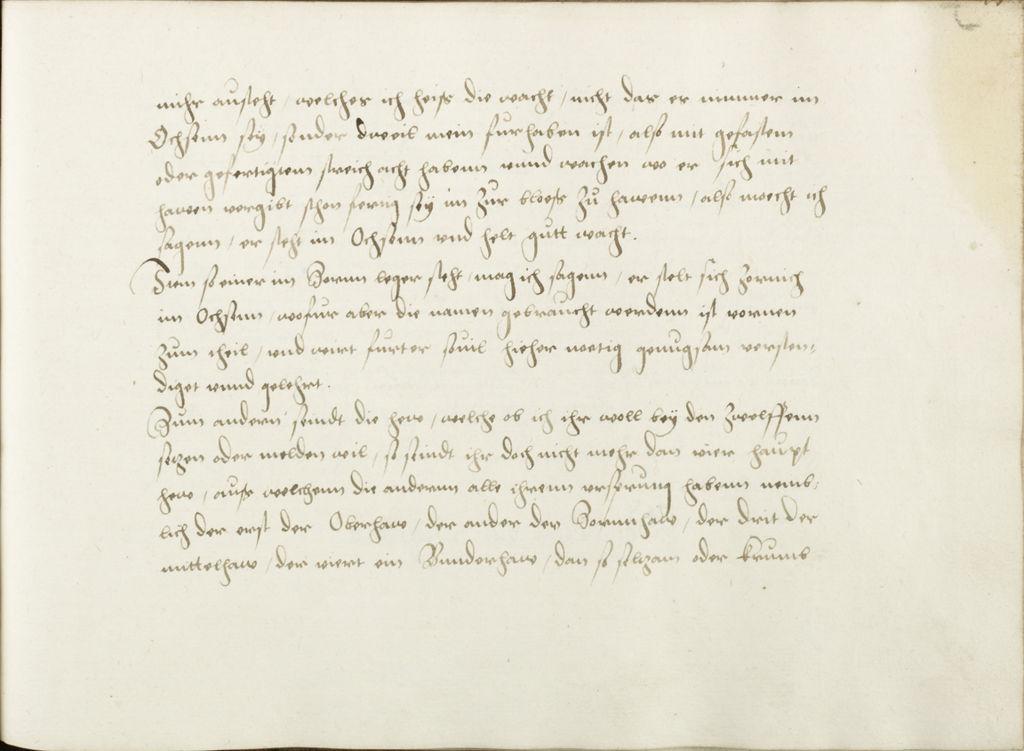 mihr aussteht, welches ich heiss die wacht, nicht das er nimmer im
Ochsenn sey, sonder dweil mein furhaben ist, also mit gefastem
oder gefertigtem streich acht habenn unnd wachen wo er sich mit
hawen vergibt schon fertig sey im zur bloess zu hawenn, also moecht ich
sagenn, er steht im Ochsenn und helt gutt wacht.
Item so einer im Zornn leger steht, mag ich sagenn, er stelt sich zornich
im Ochsenn, wofur aber die namen gebraucht werdenn ist vornen
zum theil, und wirt furter sovil hieher noetig genugsam versten-
diget unnd gelehrt.
Zum andern seindt die hew, welche ob ich ihr woll bey den zwelffenn
setzen oder melden wil, so seindt ihr doch nicht mehr dan vier haupt
hew, auss welchenn die andernn alle ihrenn ursprung habenn nemb-
lich der erst der Oberhaw, der ander der Zornnhaw, der drit der
mittelhaw, der viert ein Vnnderhaw, dan so seltzam oder krumb